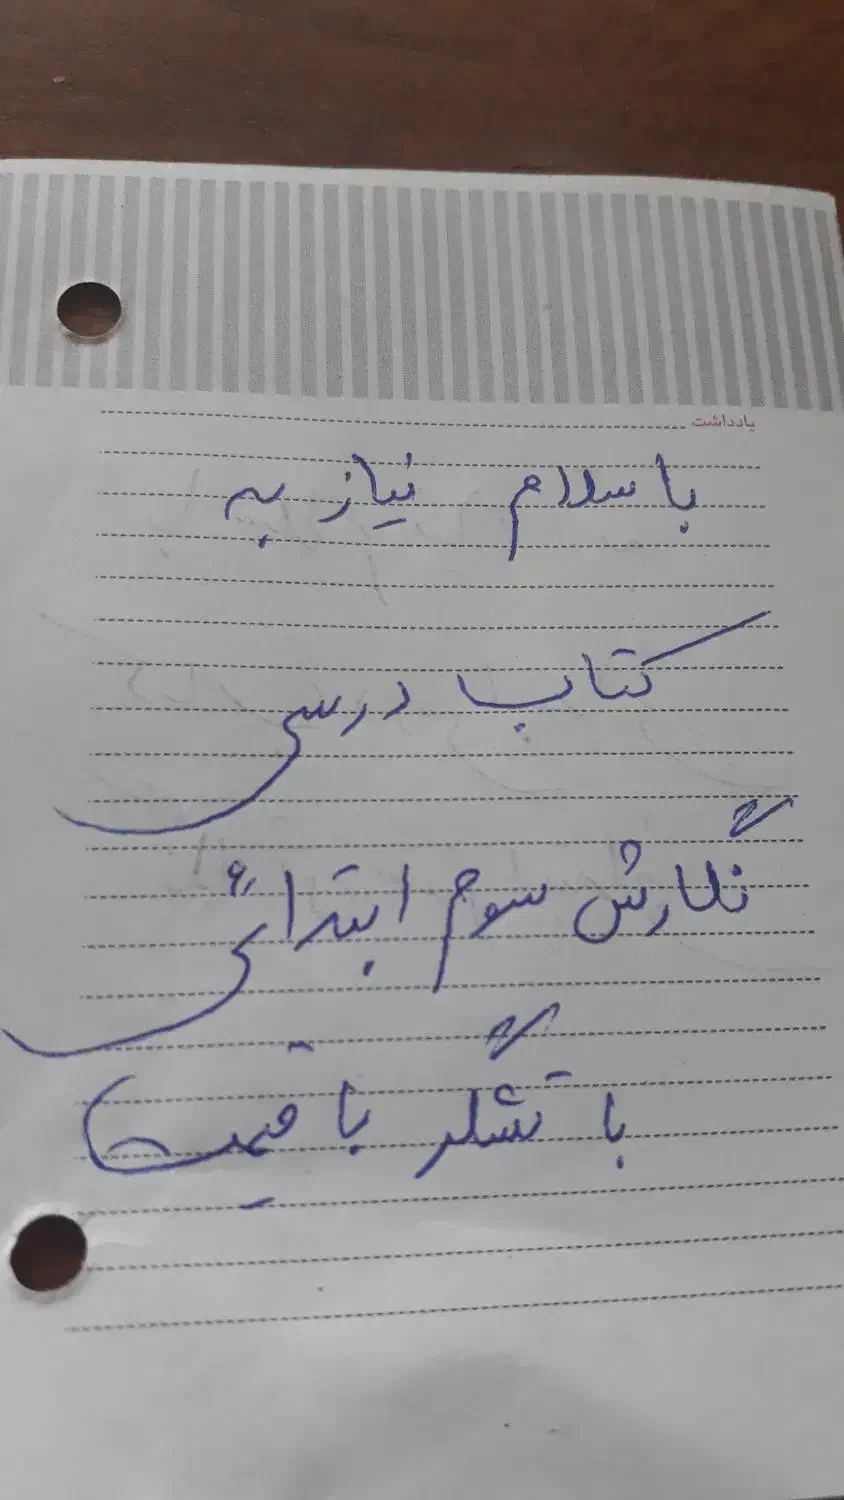 یادداشت
با سلام نیاز به
کتاب درسی
نگارش سوم ابتدائی
با تشکر با قیمت